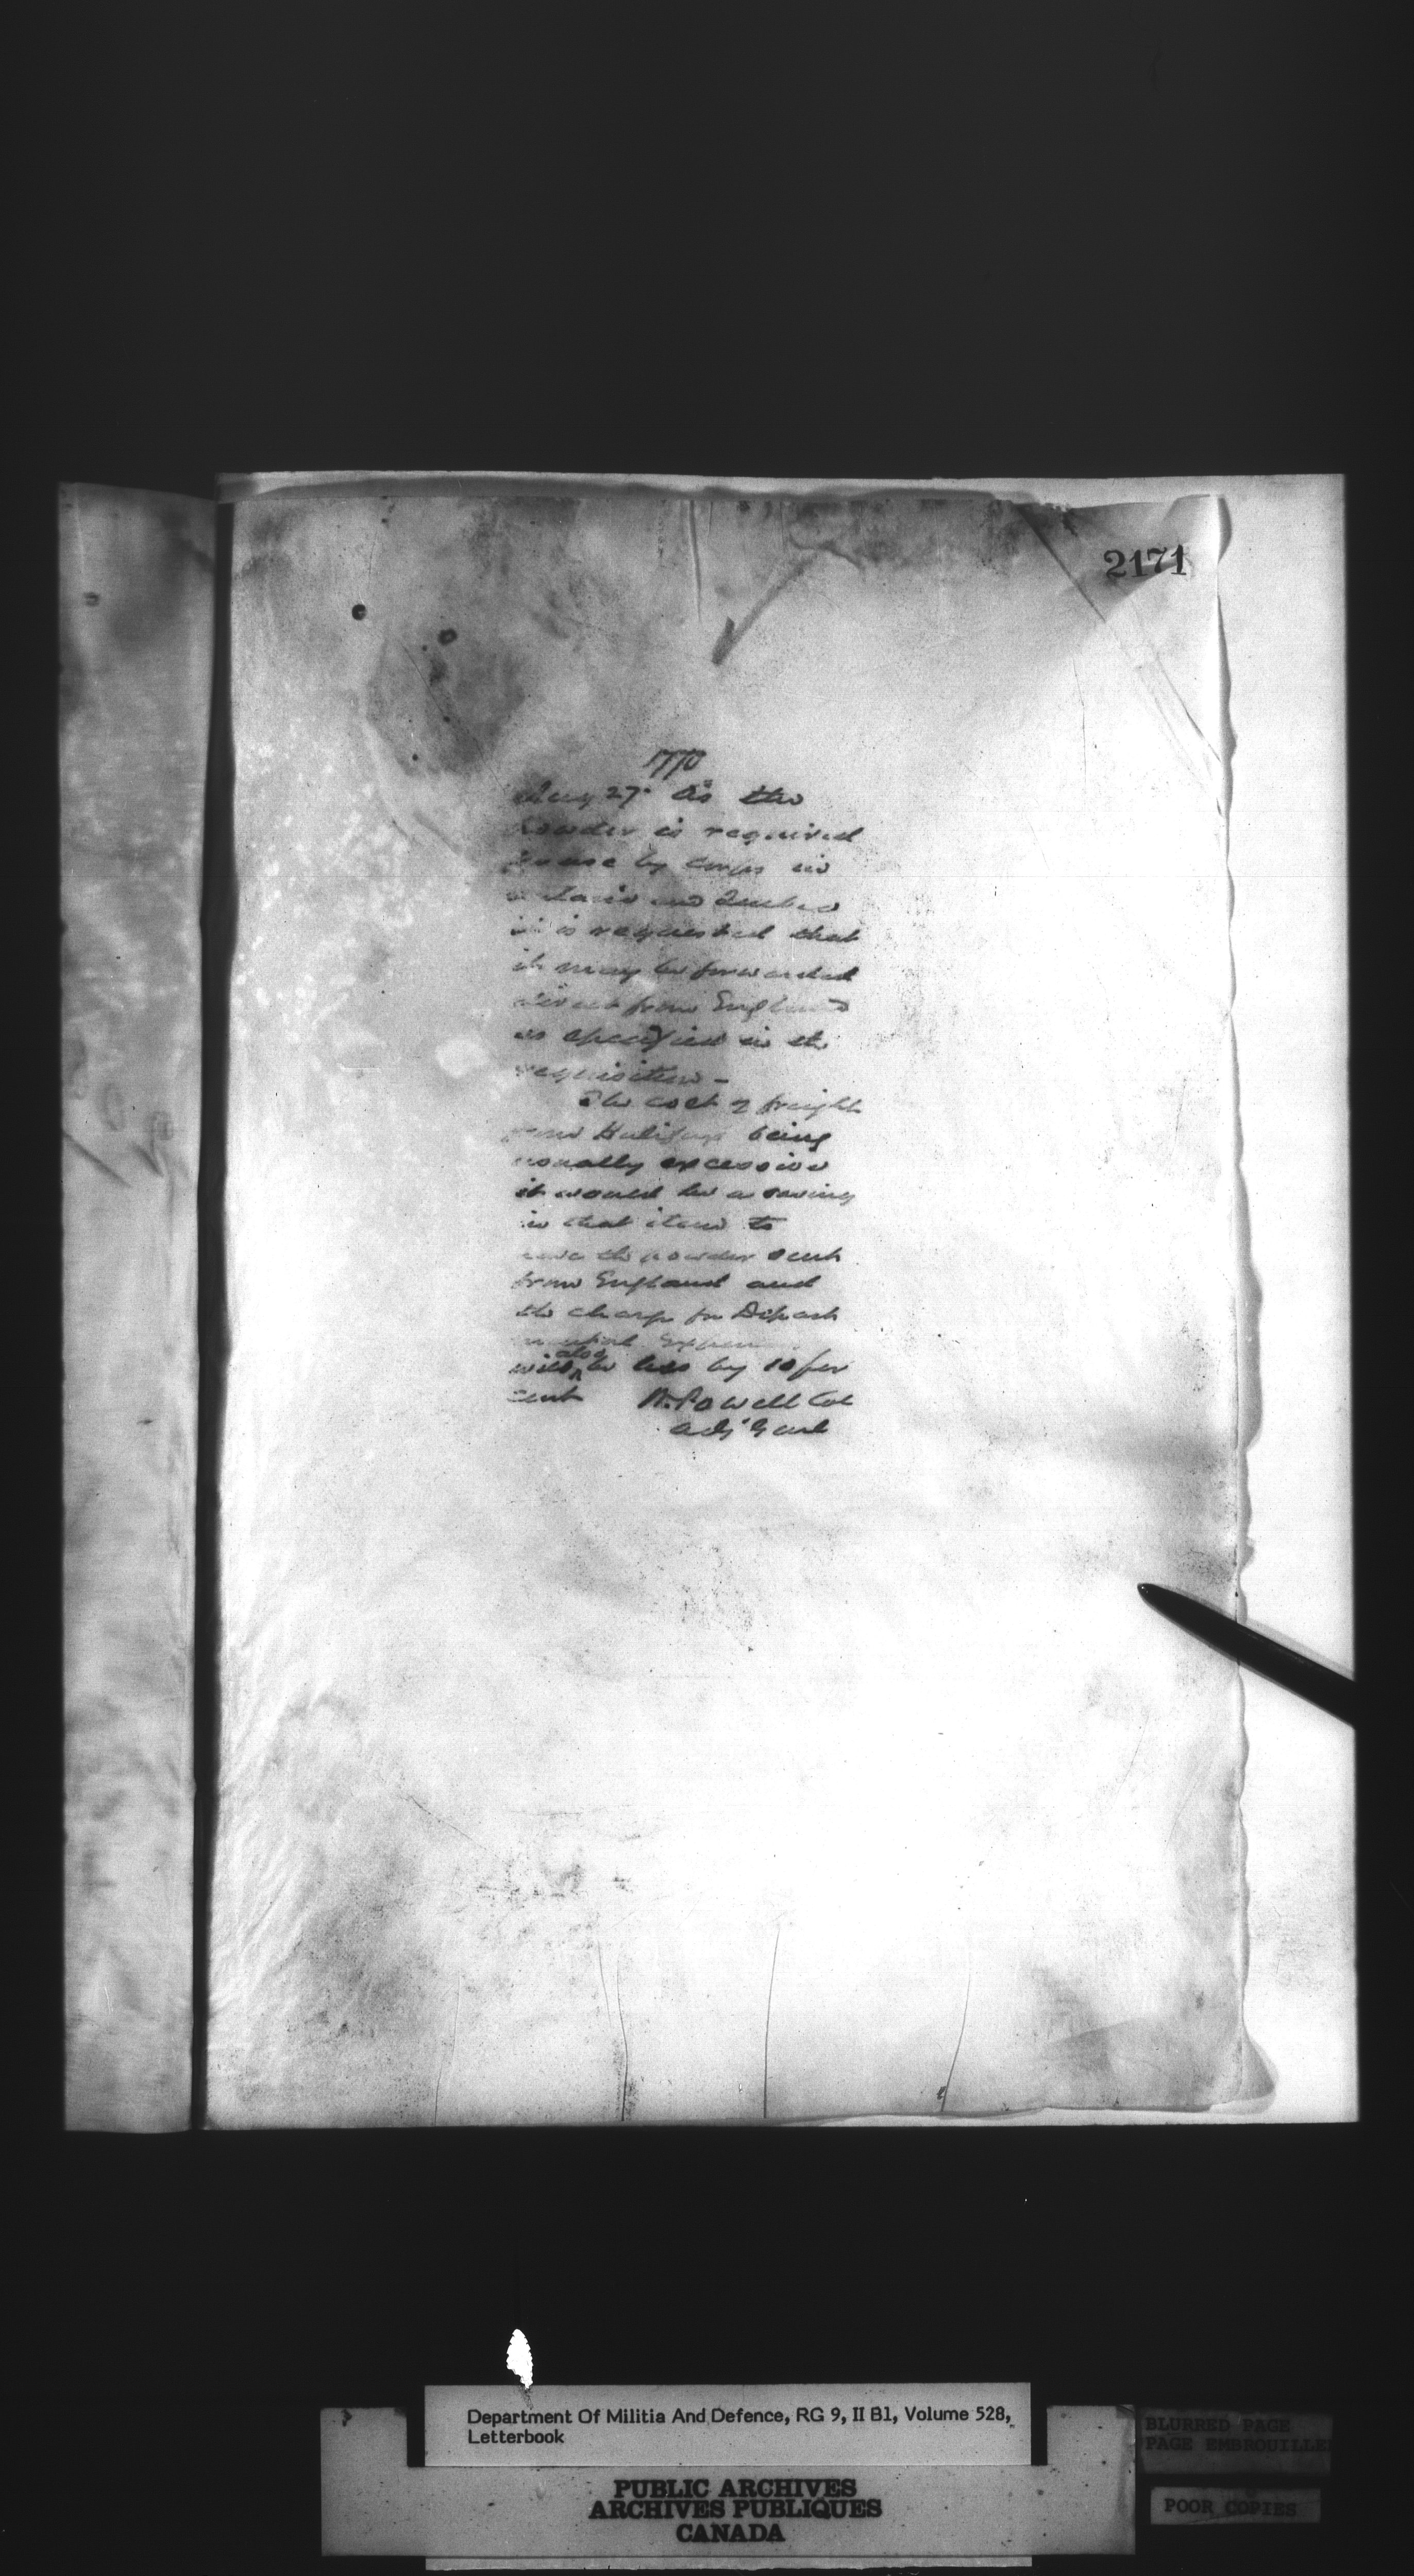 2171
1770
Aug 27. As the
Powder is required
for use by Corps in
Ontario and Quebec
it is requested that
it may be forwarded
direct from England
as specified in the
requisition –
The cost of freight
from Halifax being
usually excessive
it would be a saving
in that item to
have the powder sent
from England and
the charge for Depart
mental Expenses
will also be less by 10 per
cent W. Powell Col
Adj Genl
Department Of Militia And Defence, RG 9, II B1, Volume 528,
Letterbook
BLURRED PAGE
PAGE EMBROUILLE
PUBLIC ARCHIVES
ARCHIVES PUBLIQUES
CANADA
POOR COPIES